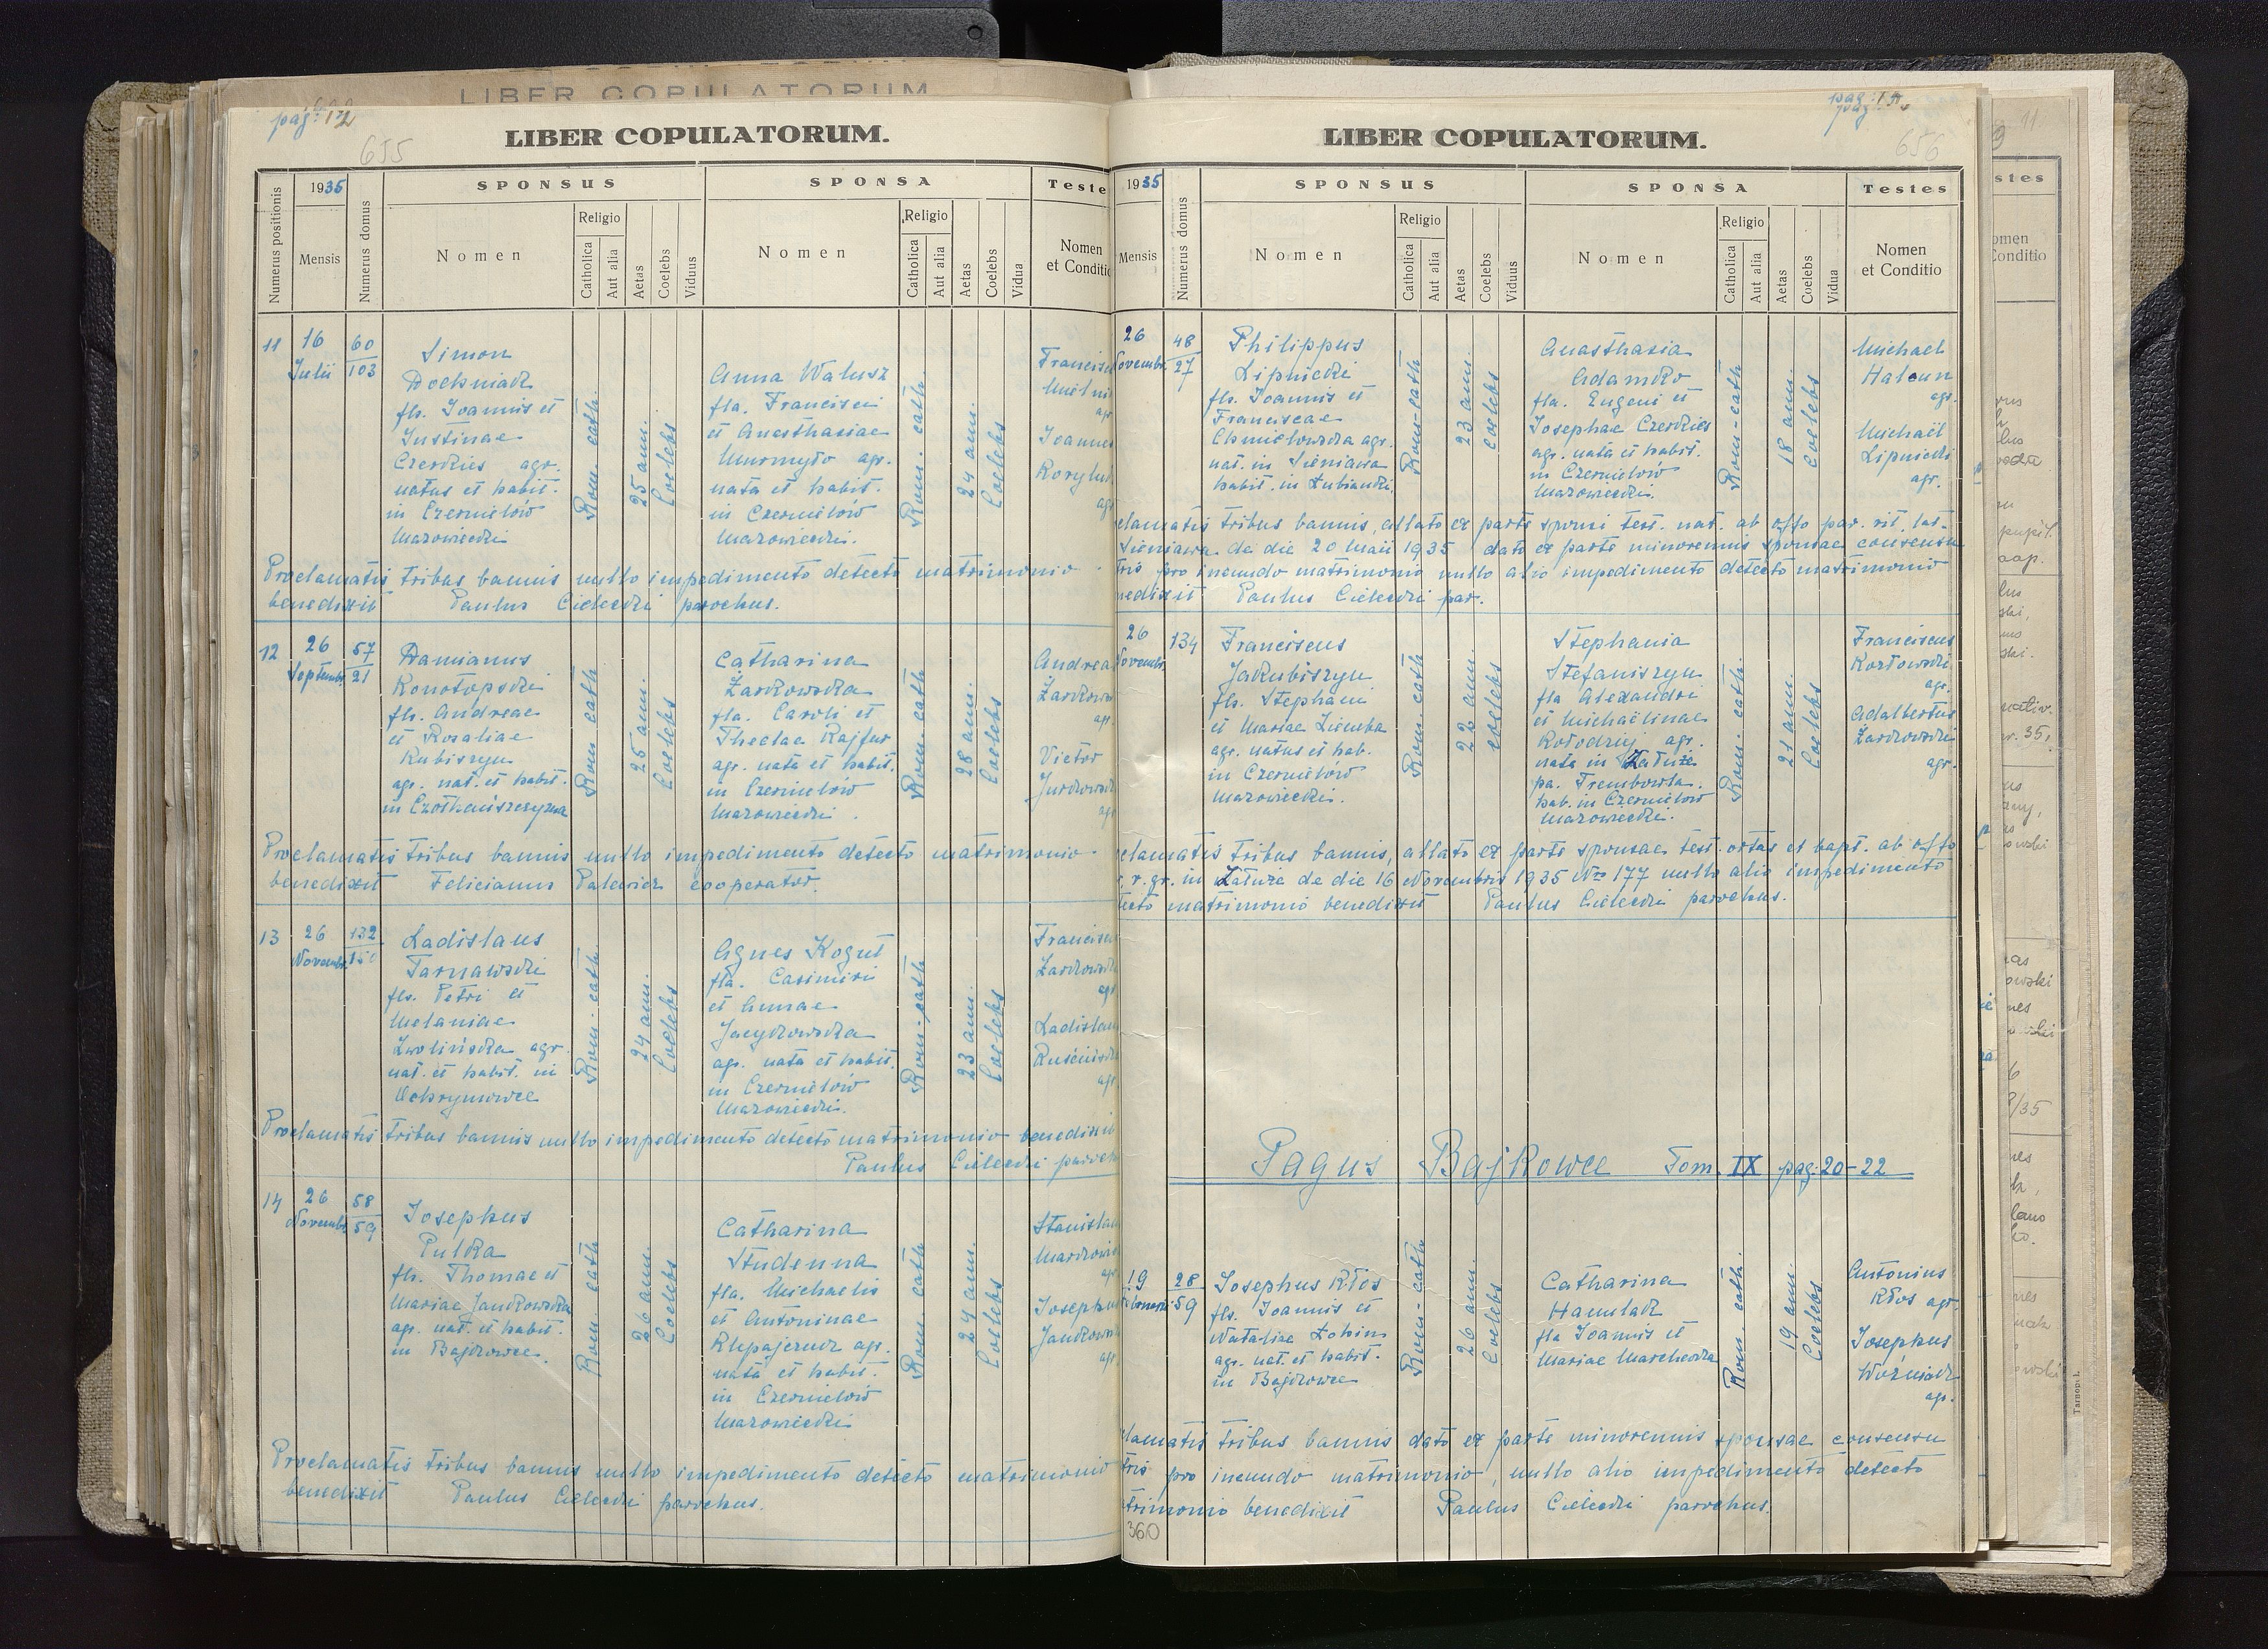 LIBER COPULATORUM
pag. 12
655
LIBER COPULATORUM.
Numerus positionis
1935
Mensis
Numerus domus
SPONSUS
Nomen
Religio
Catholica
Aut alia
Aetas
Coelebs
Viduus
SPONSA
Nomen
Religio
Catholica
Aut alia
Aetas
Coelebs
Vidua
Teste
Nomen
et Conditio
11
16
Julii
60
103
Simon
Dochniak
fls. Joannis et
Justinae
Czerkies agr.
natus et habit.
in Czernielów
Mazowiecki
Rom. cath.
25 ann.
Coelebs
Anna Walusz
fla. Francisci
et Anasthasiae
agr.
nata et habit.
in Czernielów
Mazowiecki.
Rom. cath.
24 ann.
Coelebs
Francisc
agr
Joannes
agr
Proclamatis tribus bannis nullo impedimento detecto matrimonio
benedixit Paulus Cielecki parochus.
12
26
Septembr.
57
21
Damianus
Konotopski
fls. Andreae
et Rosaliae
Kubiszyn
agr. nat. et habit.
in
Rom cath
25 ann.
Coelebs
Catharina
Żarkowska
fla. Caroli et
Theclae Rajfur
agr. nata et habit.
in Czernielów
Mazowiecki.
Rom. cath
28 ann.
Coelebs
Andrea
Żarkows
agr
Victor
agr
Proclamatis tribus bannis nullo impedimento detecto matrimonio
benedixit Felicianus Palewicz cooperator.
13
26
Novembr.
132
Ladislaus
Tarnawski
fls. Petri et
Melaniae
Zwolińska agr.
nat. et habit. in
Ochrymowce
Rom-cath.
24 ann.
Coelebs
Agnes Kogut
fla. Casimiri
et Annae
Jacykowska
agr. nata et habit.
in Czernielów
Mazowiecki.
Rom-cath
23 ann.
Coelebs
Francisc
Żarkowsk
agr
Ladislau
agr.
Proclamatis tribus bannis nullo impedimento detecto matrimonio benedixit
Paulus Cielecki paroch
14
26
Novembr.
58
59
Josephus
Pulka
fls. Thomae et
Mariae Jankowska
agr. nat. et habit.
in Bajkowce.
Rom. cath
26 ann.
Coelebs
Catharina
Studenna
fla. Michaelis
et Antoninae
agr.
nata et habit.
in Czernielów
Mazowiecki
Rom. cath
24 ann.
Coelebs
Stanislau
agr
Josephus
Jankows
agr
Proclamatis tribus bannis nullo impedimento detecto matrimonio
benedixit Paulus Cielecki parochus.
656
LIBER COPULATORUM.
1935
Mensis
Numerus domus
SPONSUS
Nomen
Religio
Catholica
Aut alia
Aetas
Coelebs
Viduus
SPONSA
Nomen
Religio
Catholica
Aut alia
Aetas
Coelebs
Vidua
Testes
Nomen
et Conditio
26
ovembr.
48
27
Philippus
Lipnicki
fls. Joannis et
Franciscae
Chmielowska agr.
nat. in Sieniawa
habit. in Lubianki.
Rom-cath
23 ann.
Coelebs
Anasthasia
Adamko
fla. Eugeni et
Josephae Czerkies
agr. nata et habit.
in Czernielów
Mazowiecki.
Rom-cath
18 ann.
Coelebs
Michael
Halaun
agr.
Michaël
Lipnicki
agr.
clamatis tribus bannis, allato ex parte sponsi test. nat. ab offo par. rit. lat.
Sieniawa de die 20 Maii 1935 dato ex parte minorennis sponsae consensu
tris pro ineundo matrimonio nullo alio impedimento detecto matrimonio
nedixit Paulus Cielecki par.
26
ovembr.
134
Franciscus
Jakubiszyn
fls. Stephani
et Mariae Ziemba
agr. natus et hab.
in Czernielów
Mazowiecki.
Rom cath
22 ann.
Coelebs
Stephania
Stefaniszyn
fla Alexandri
et Michaëlinae
Kołodziej agr.
nata in Załuże
pa. Trembowla.
hab. in Czernielów
Mazowiecki.
Rom. cath.
21 ann.
Coelebs
Franciscus
Kozłowski
agr.
Adalbertus
Żarkowski
agr.
clamatis tribus bannis, allato ex parte sponsae test. ortus et bapt. ab offo
r. gr. in Załuże de die 16 Novembris 1935 Nro 177 nullo alio impedimento
tecto matrimonio benedixit Paulus Cielecki parochus.
Pagus Bajkowce Tom. IX pag. 20-22
19
28
59
Josephus Kłos
fls. Joannis et
Nataliae
agr. nat. et habit.
in Bajkowce
Rom-cath
26 ann.
Coelebs
Catharina
Hamulak
fla Joannis et
Mariae
Rom. cath.
19 ann.
Coelebs
Antonius
Kłos agr.
Josephus
Woźniak
agr.
clamatis tribus bannis dato ex parte minorennis sponsae consensu
tris pro ineundo matrimonio, nullo alio impedimento detecto
trimonio benedixit Paulus Cielecki parochus.
360
Tarnopol.